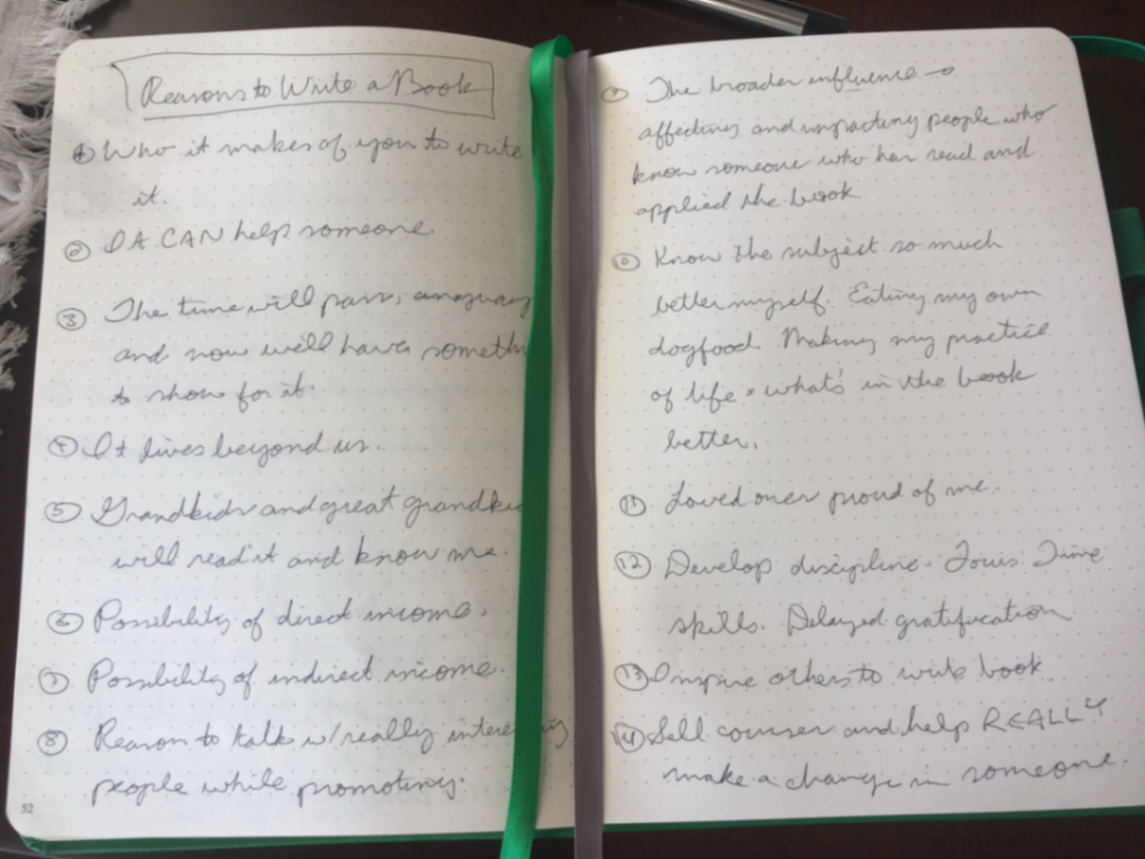 Reasons to Write a Book
① Who it makes of you to write
it.
② It CAN help someone.
③ The time will pass, anyway
and now we'll have somethi
to show for it.
④ It lives beyond us.
⑤ Grandkids and great grandki
will read it and know me.
⑥ Possibility of direct income.
⑦ Possibility of indirect income.
⑧ Reason to talk w/ really interesting
people while promoting.
52
⑨ The broader influence →
affecting and impacting people who
know someone who has read and
applied the book
⑩ Know the subject so much
better myself. Eating my own
dogfood. Making my practice
of life = what's in the book
better.
⑪ Loved ones proud of me.
⑫ Develop discipline. Focus. Time
skills. Delayed gratification
⑬ Inspire others to write book.
⑭ Sell courses and help REALLY
make a change in someone.